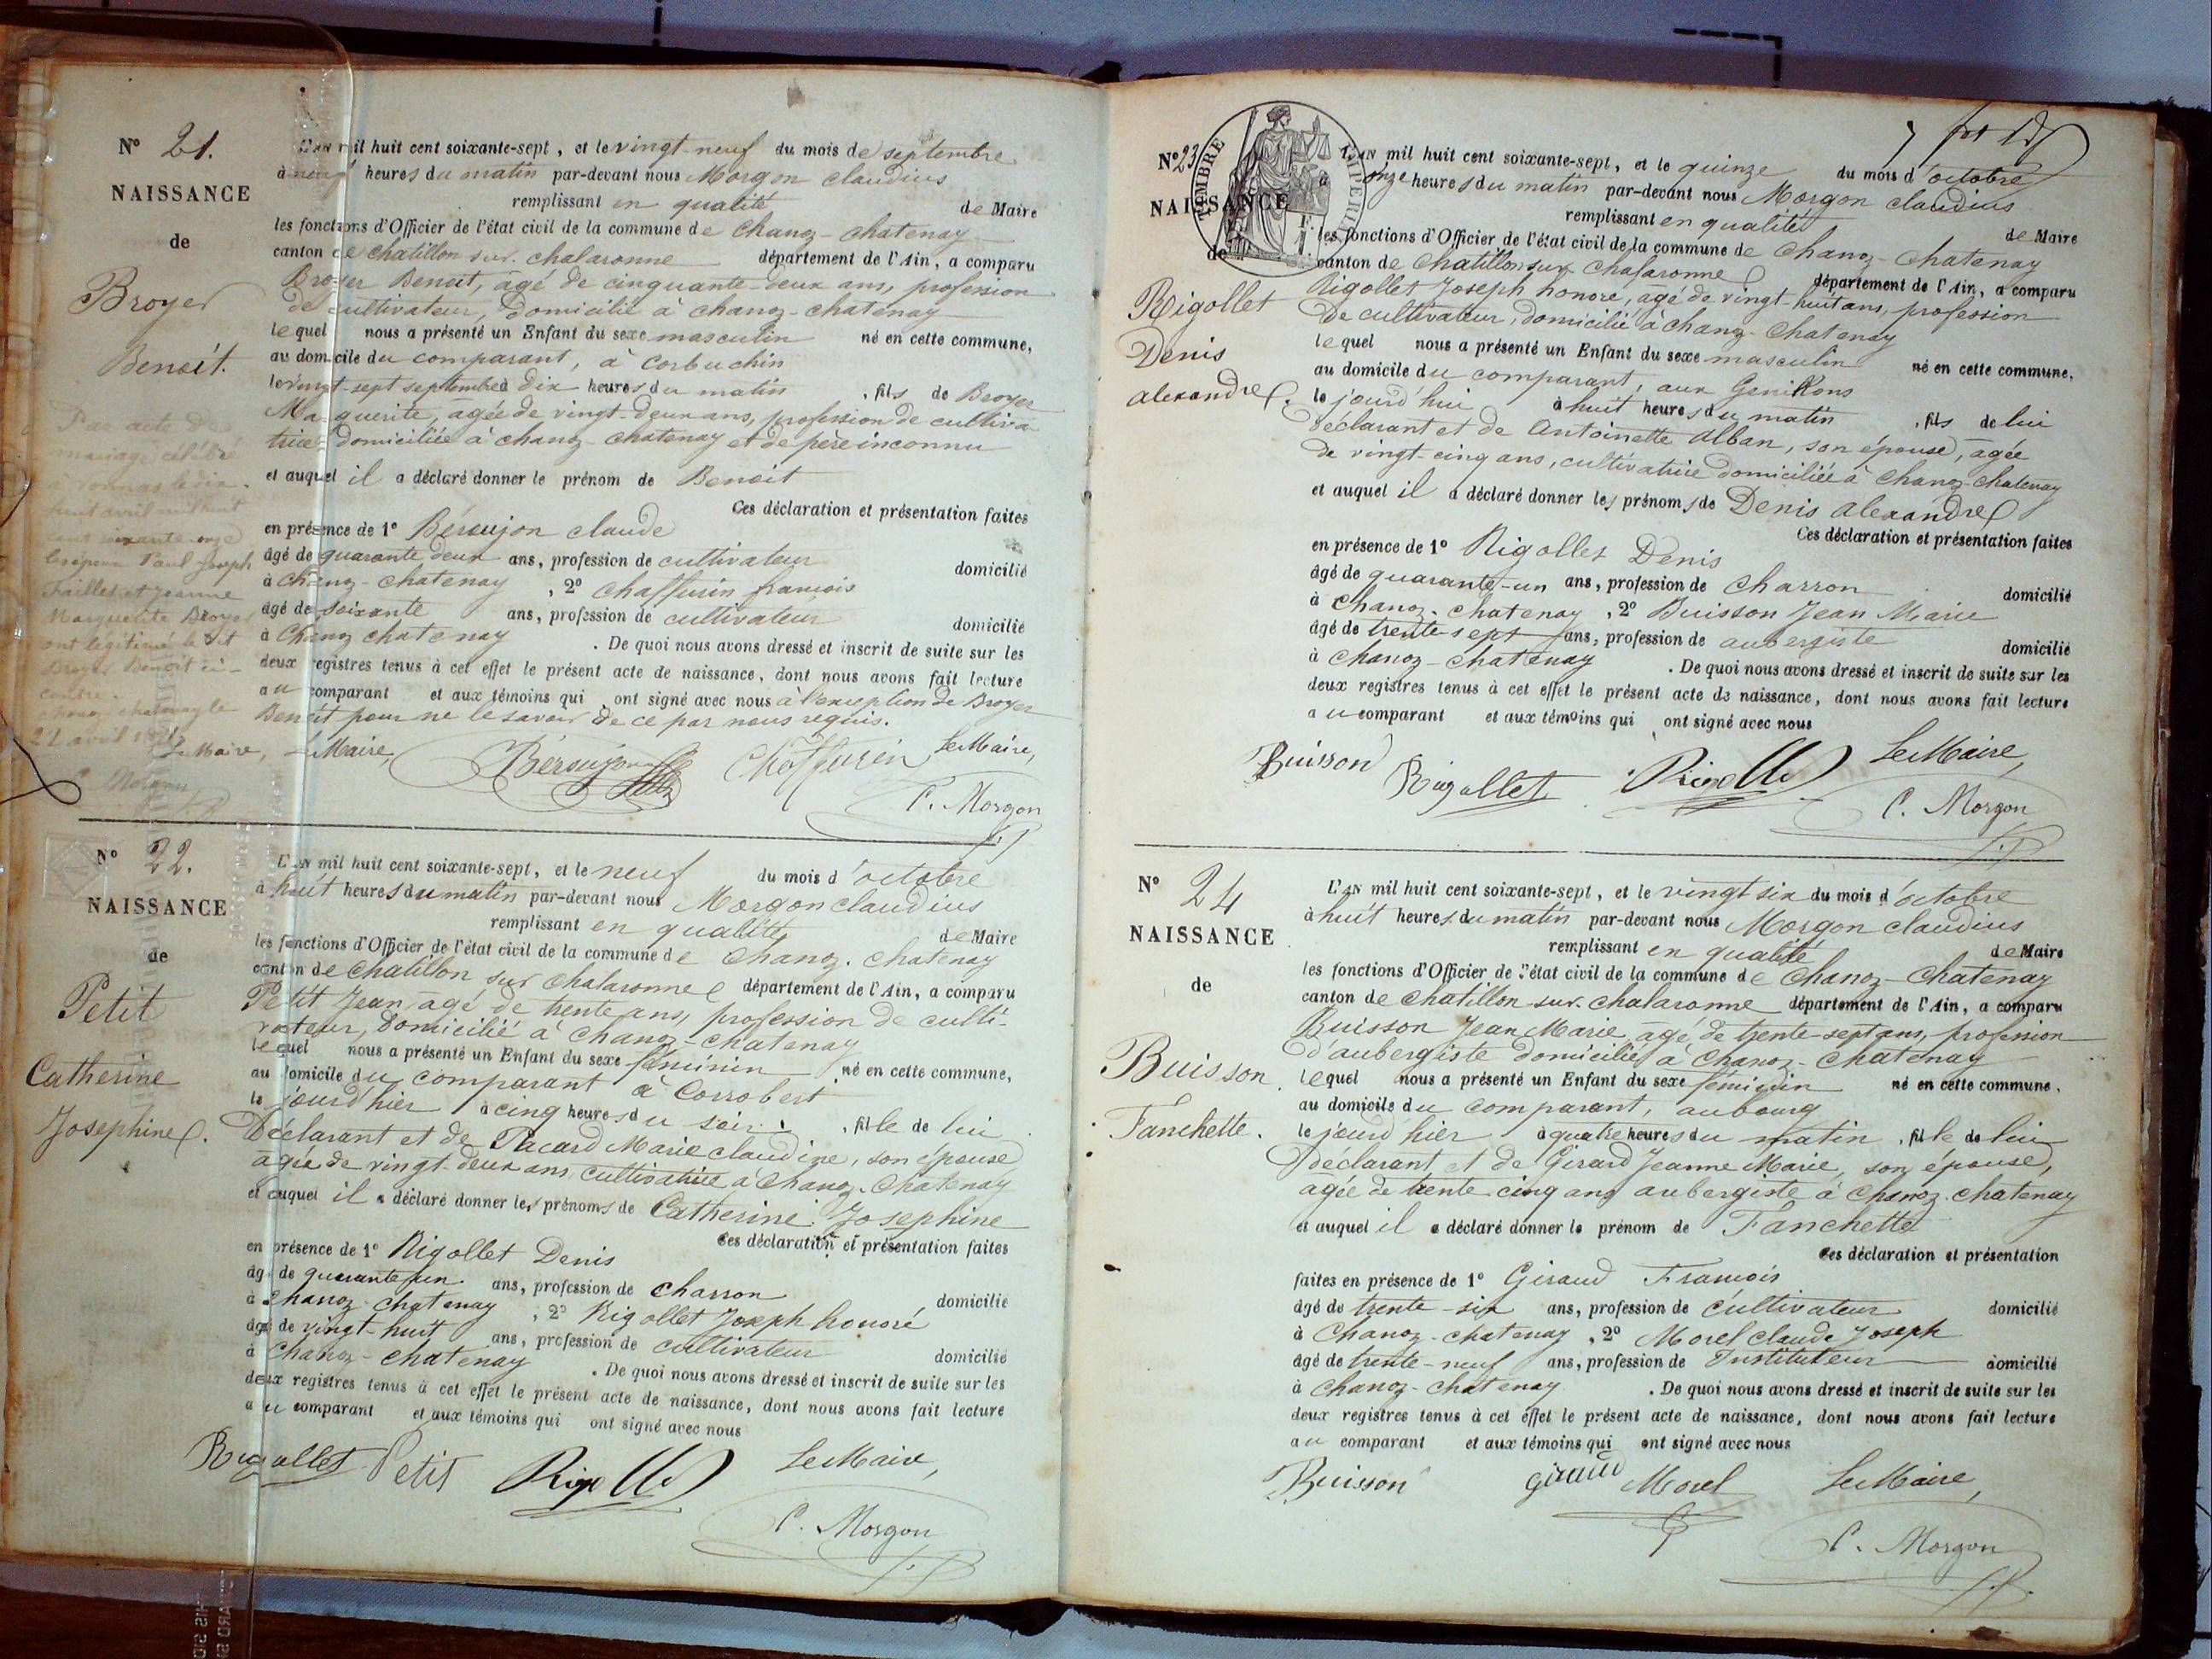 N° 21.
NAISSANCE
de
Broyer
Benoit.
L'an mil huit cent soixante-sept, et le vingt-neuf du mois de septembre
à neuf heures du matin par-devant nous Morgon claudius
remplissant en qualité de Maire
les fonctions d'Officier de l'état civil de la commune de Chanoz-chatenay
canton de chatillon sur chalaronne département de l'Ain, a comparu
Broyer Benoit, âgé de cinquante-deux ans, profession
de cultivateur, domicilié à chanoz-chatenay
lequel nous a présenté un Enfant du sexe masculin né en cette commune,
au domicile du comparant, à Corbuchin
le vingt-sept septembre à dix heures du matin, fils de Broyer
Marguerite, âgée de vingt-deux ans, profession de cultiva
trice domiciliée à chanoz-chatenay et de père inconnu
et auquel il a déclaré donner le prénom de Benoit
Ces déclaration et présentation faites
en présence de 1° Béroujon claude
âgé de quarante deux ans, profession de cultivateur domicilié
à Chanoz-chatenay, 2° chaffurin francois
âgé de soixante ans, profession de cultivateur domicilié
à Chanoz chatenay. De quoi nous avons dressé et inscrit de suite sur les
deux registres tenus à cet effet le présent acte de naissance, dont nous avons fait lecture
au comparant et aux témoins qui ont signé avec nous à l'exception de Broyer
Benoit pour ne le savoir de ce par nous requis.
Le Maire, Béroujon Chaffurin Le Maire,
C. Morgon
Par acte de
mariage célébré
à Vonnas le dix-
huit avril mil huit
cent soixante-onze
les époux Paul Joseph
Faillet et Jeanne
Marguerite Broyer
ont légitimé le dit
Broyer Benoit ci-
contre.
chanoz chatenay le
21 avril
Le Maire,
C. Morgon
N° 22.
NAISSANCE
de
Petit
Catherine
Josephine.
L'an mil huit cent soixante-sept, et le neuf du mois d'octobre
à huit heures du matin par-devant nous Morgon claudius
remplissant en qualité de Maire
les fonctions d'Officier de l'état civil de la commune de Chanoz-chatenay
canton de chatillon sur chalaronne département de l'Ain, a comparu
Petit Jean, âgé de trente ans, profession de culti-
vateur, domicilié à chanoz-chatenay
lequel nous a présenté un Enfant du sexe féminin né en cette commune,
au domicile du comparant à Corrobert
le jourd'hier à cinq heures du soir, fille de lui
Déclarant et de Pacard Marie claudine, son épouse
agée de vingt-deux ans, cultivatrice à Chanoz-chatenay
et auquel il a déclaré donner les prénoms de Catherine Josephine
Ces déclaration et présentation faites
en présence de 1° Rigollet Denis
âgé de quarante un ans, profession de charron domicilié
à chanoz-chatenay, 2° Rigollet Joseph honoré
âgé de vingt-huit ans, profession de cultivateur domicilié
à Chanoz-chatenay. De quoi nous avons dressé et inscrit de suite sur les
deux registres tenus à cet effet le présent acte de naissance, dont nous avons fait lecture
au comparant et aux témoins qui ont signé avec nous
Rigollet Petit Rigollet Le Maire,
C. Morgon
N° 23
NAISSANCE
de
TIMBRE
Rigollet
Denis
alexandre.
L'an mil huit cent soixante-sept, et le quinze du mois d'octobre
à onze heures du matin par-devant nous Morgon claudius
remplissant en qualité de Maire
les fonctions d'Officier de l'état civil de la commune de Chanoz-Chatenay
canton de chatillon sur chalaronne département de l'Ain, a comparu
Rigollet Joseph honoré, âgé de vingt-huit ans, profession
de cultivateur, domicilié à chanoz-Chatenay
lequel nous a présenté un Enfant du sexe masculin né en cette commune,
au domicile du comparant, aux
le jourd'hui à huit heures du matin, fils de lui
déclarant et de Antoinette Alban, son épouse, âgée
de vingt-cinq ans, cultivatrice domiciliée à Chanoz-chatenay
et auquel il a déclaré donner les prénoms de Denis alexandre
Ces déclaration et présentation faites
en présence de 1° Rigollet Denis
âgé de quarante-un ans, profession de charron domicilié
à Chanoz-chatenay, 2° Buisson Jean Marie
âgé de trente-sept ans, profession de aubergiste domicilié
à chanoz-chatenay. De quoi nous avons dressé et inscrit de suite sur les
deux registres tenus à cet effet le présent acte de naissance, dont nous avons fait lecture
au comparant et aux témoins qui ont signé avec nous
Buisson Rigollet Rigollet Le Maire,
C. Morgon
N° 24
NAISSANCE
de
Buisson
Fanchette.
L'an mil huit cent soixante-sept, et le vingt six du mois d'octobre
à huit heures du matin par-devant nous Morgon claudius
remplissant en qualité de Maire
les fonctions d'Officier de l'état civil de la commune de Chanoz-Chatenay
canton de chatillon-sur-chalaronne département de l'Ain, a comparu
Buisson Jean Marie, âgé de trente-sept ans, profession
d'aubergiste domicilié à Chanoz-Chatenay
lequel nous a présenté un Enfant du sexe féminin né en cette commune,
au domicile du comparant, au bourg
le jourd'hier à quatre heures du matin, fille de lui
déclarant et de Girard Jeanne Marie, son épouse,
agée de trente-cinq ans aubergiste à Chanoz-chatenay
et auquel il a déclaré donner le prénom de Fanchette
Ces déclaration et présentation
faites en présence de 1° Giraud Francois
âgé de trente-six ans, profession de cultivateur domicilié
à Chanoz-chatenay, 2° Morel claude Joseph
âgé de trente-neuf ans, profession de Instituteur domicilié
à Chanoz-chatenay. De quoi nous avons dressé et inscrit de suite sur les
deux registres tenus à cet effet le présent acte de naissance, dont nous avons fait lecture
au comparant et aux témoins qui ont signé avec nous
Buisson giraud Morel Le Maire,
C. Morgon